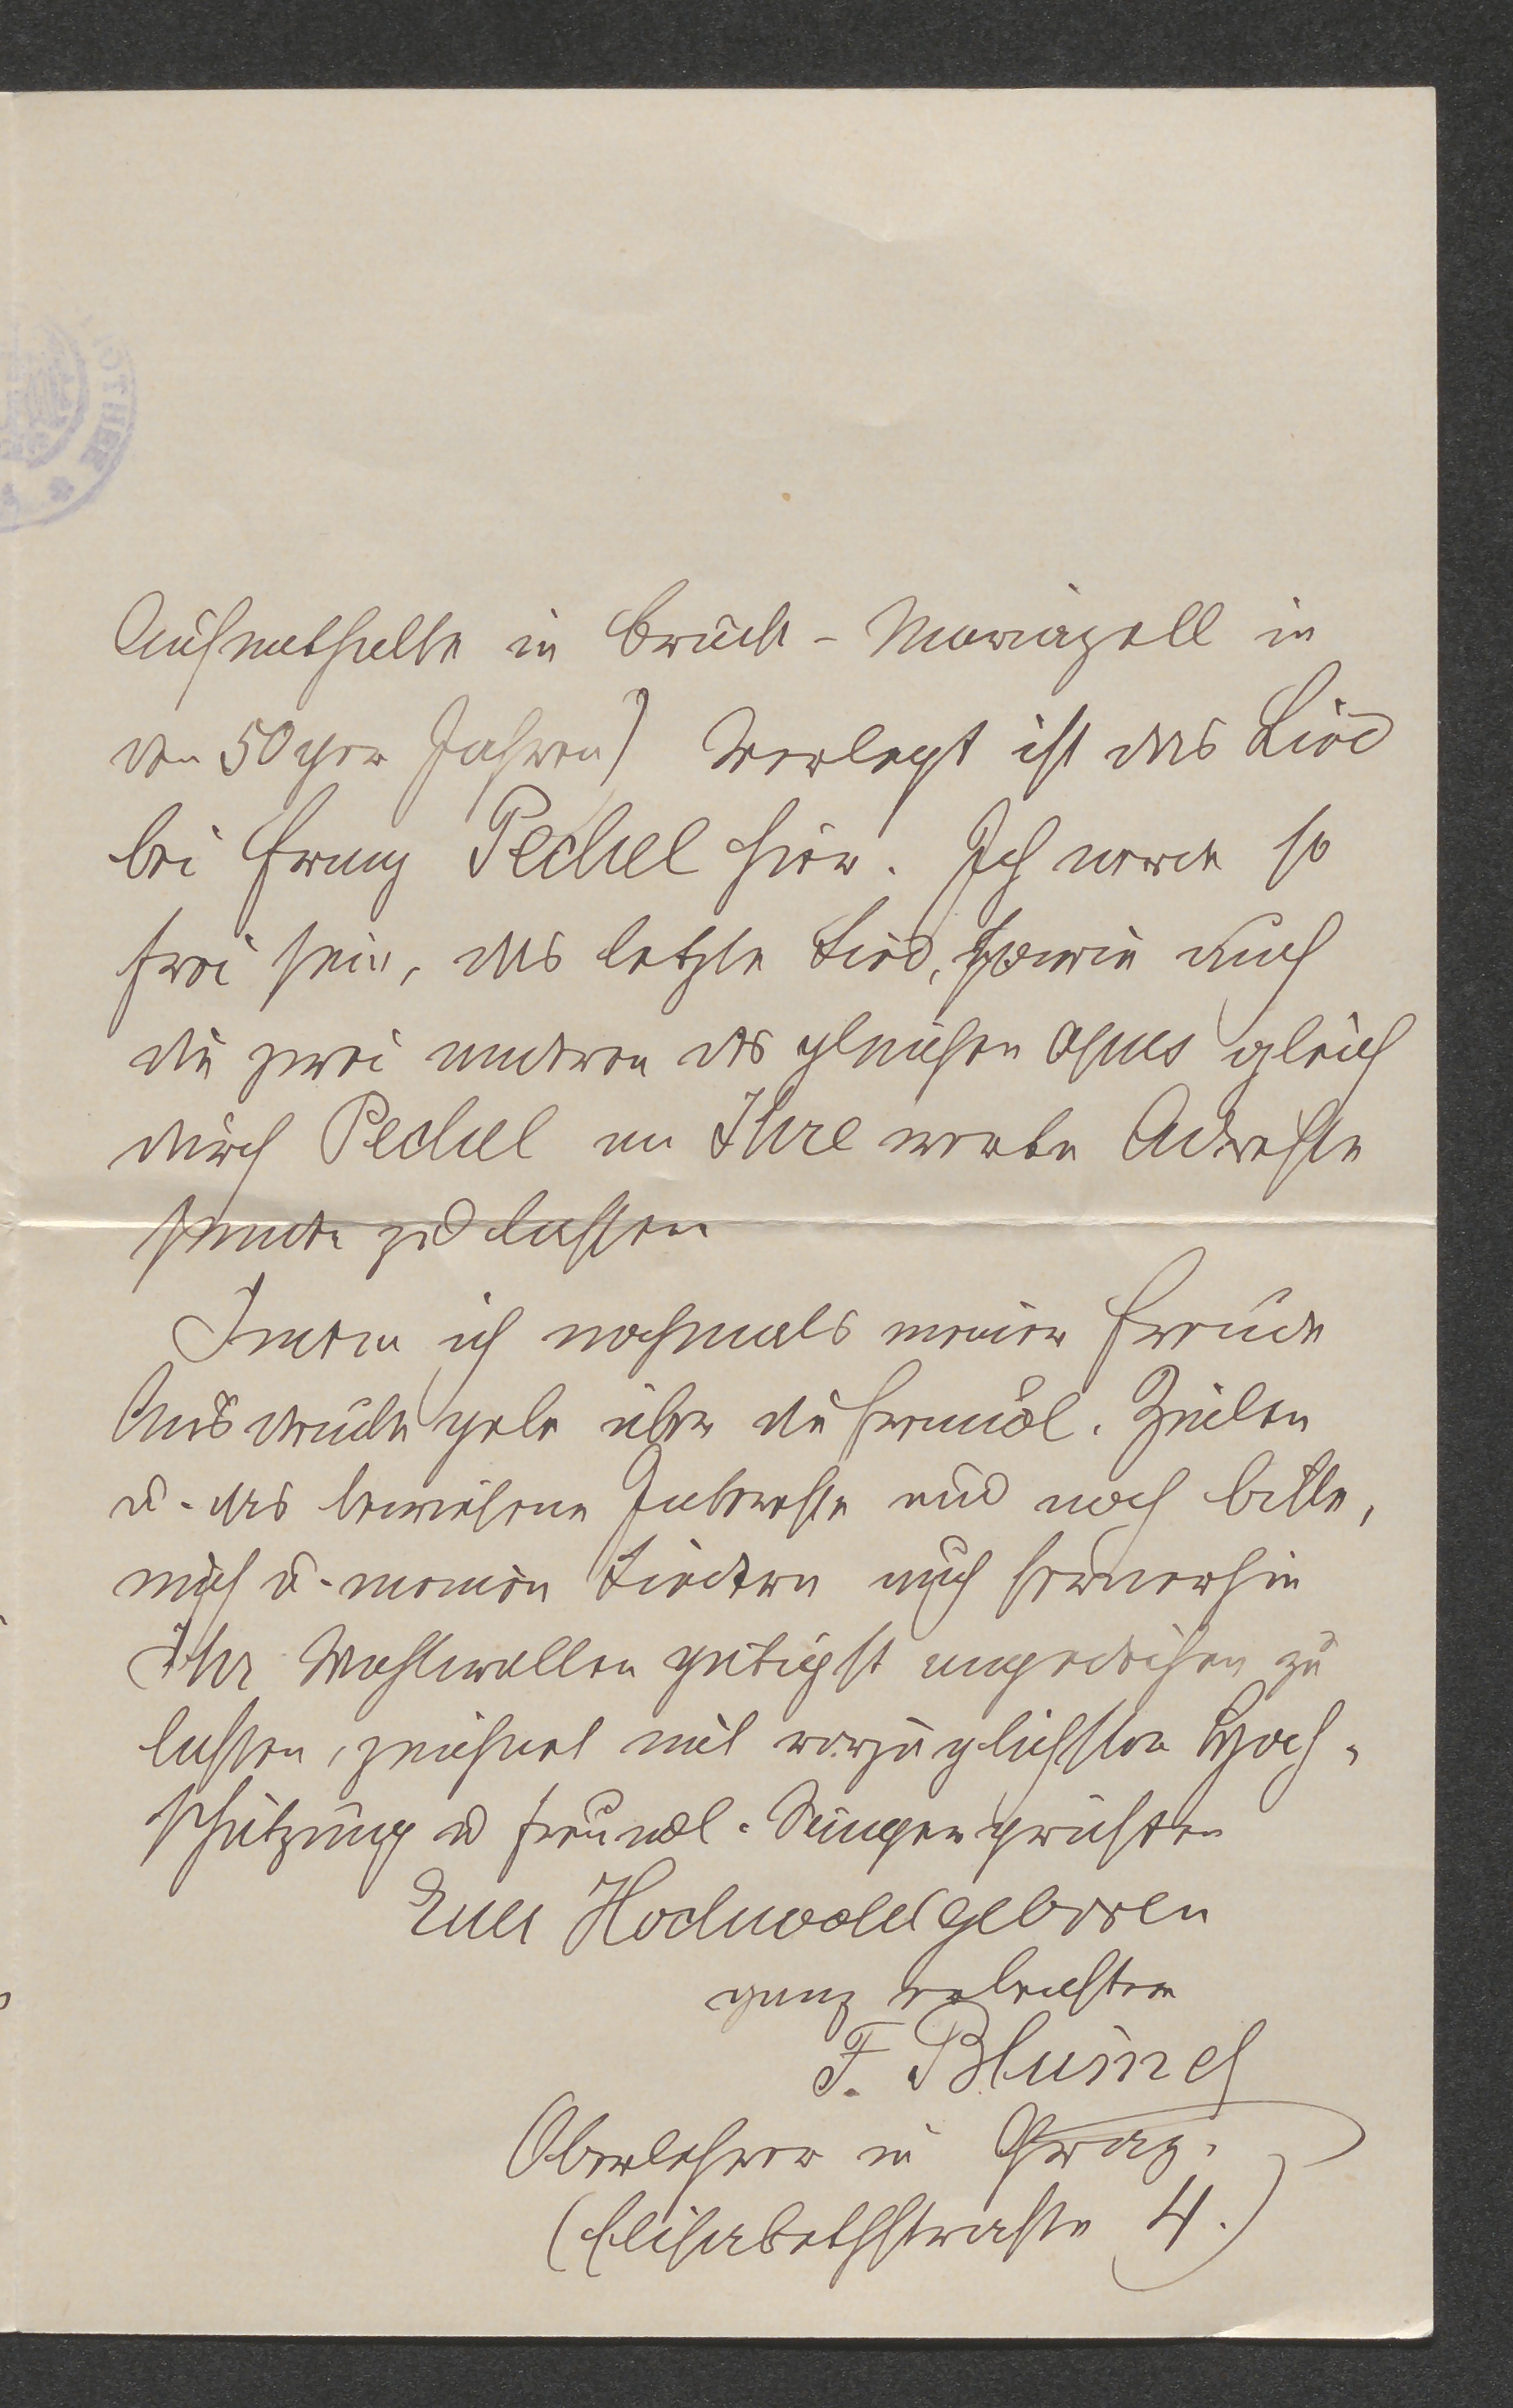 OTHEK
Aufenthalte in Bruck - Mariazell in
den 50ger Jahren) Verlegt ist das Lied
bei Franz Pechel hier. Ich werde so
frei sein, das letzte Lied, sowie auch
die zwei anderen des gleichen opus gleich
durch Pechel an Ihre werte Adresse
senden zu lassen
Indem ich nochmals meiner Freude
Ausdruck gebe über die freundl. Zeilen
u. das bewiesene Interesse und noch bitte,
mich u. meinen Liedern auch fernerhin
Ihr Wohlwollen gütigst angedeihen zu
lassen, zeichnet mit vorzüglichster Hoch-
schätzung u freundl. Sängergrüssen
Euer Hochwohlgeboren
ganz ergebenster
F. Blümel
Oberlehrer in Graz.
(Elisabethstrasse 4.)